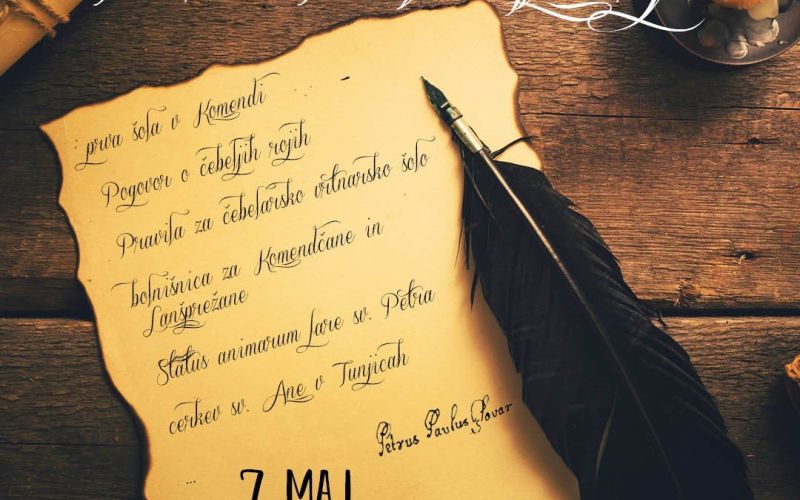 prva šola v Komendi
Pogovor o čebeljih rojih
Pravila za čebelarsko vrtnarsko šolo
bolnišnica za Komendčane in
Lanšprežane
Status animarum fare sv. Petra
cerkev sv. Ane v Tunjicah
Petrus Paulus Glovar
...
7. MAJ